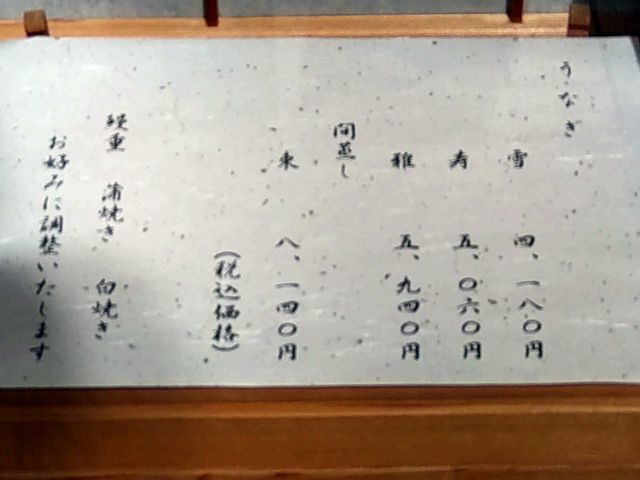 うなぎ
雪 四、一八〇円
寿 五、〇六〇円
雅 五、九四〇円
間蒸し
東 八、一四〇円
(税込価格)
重 蒲焼き 白焼き
お好みに調整いたします